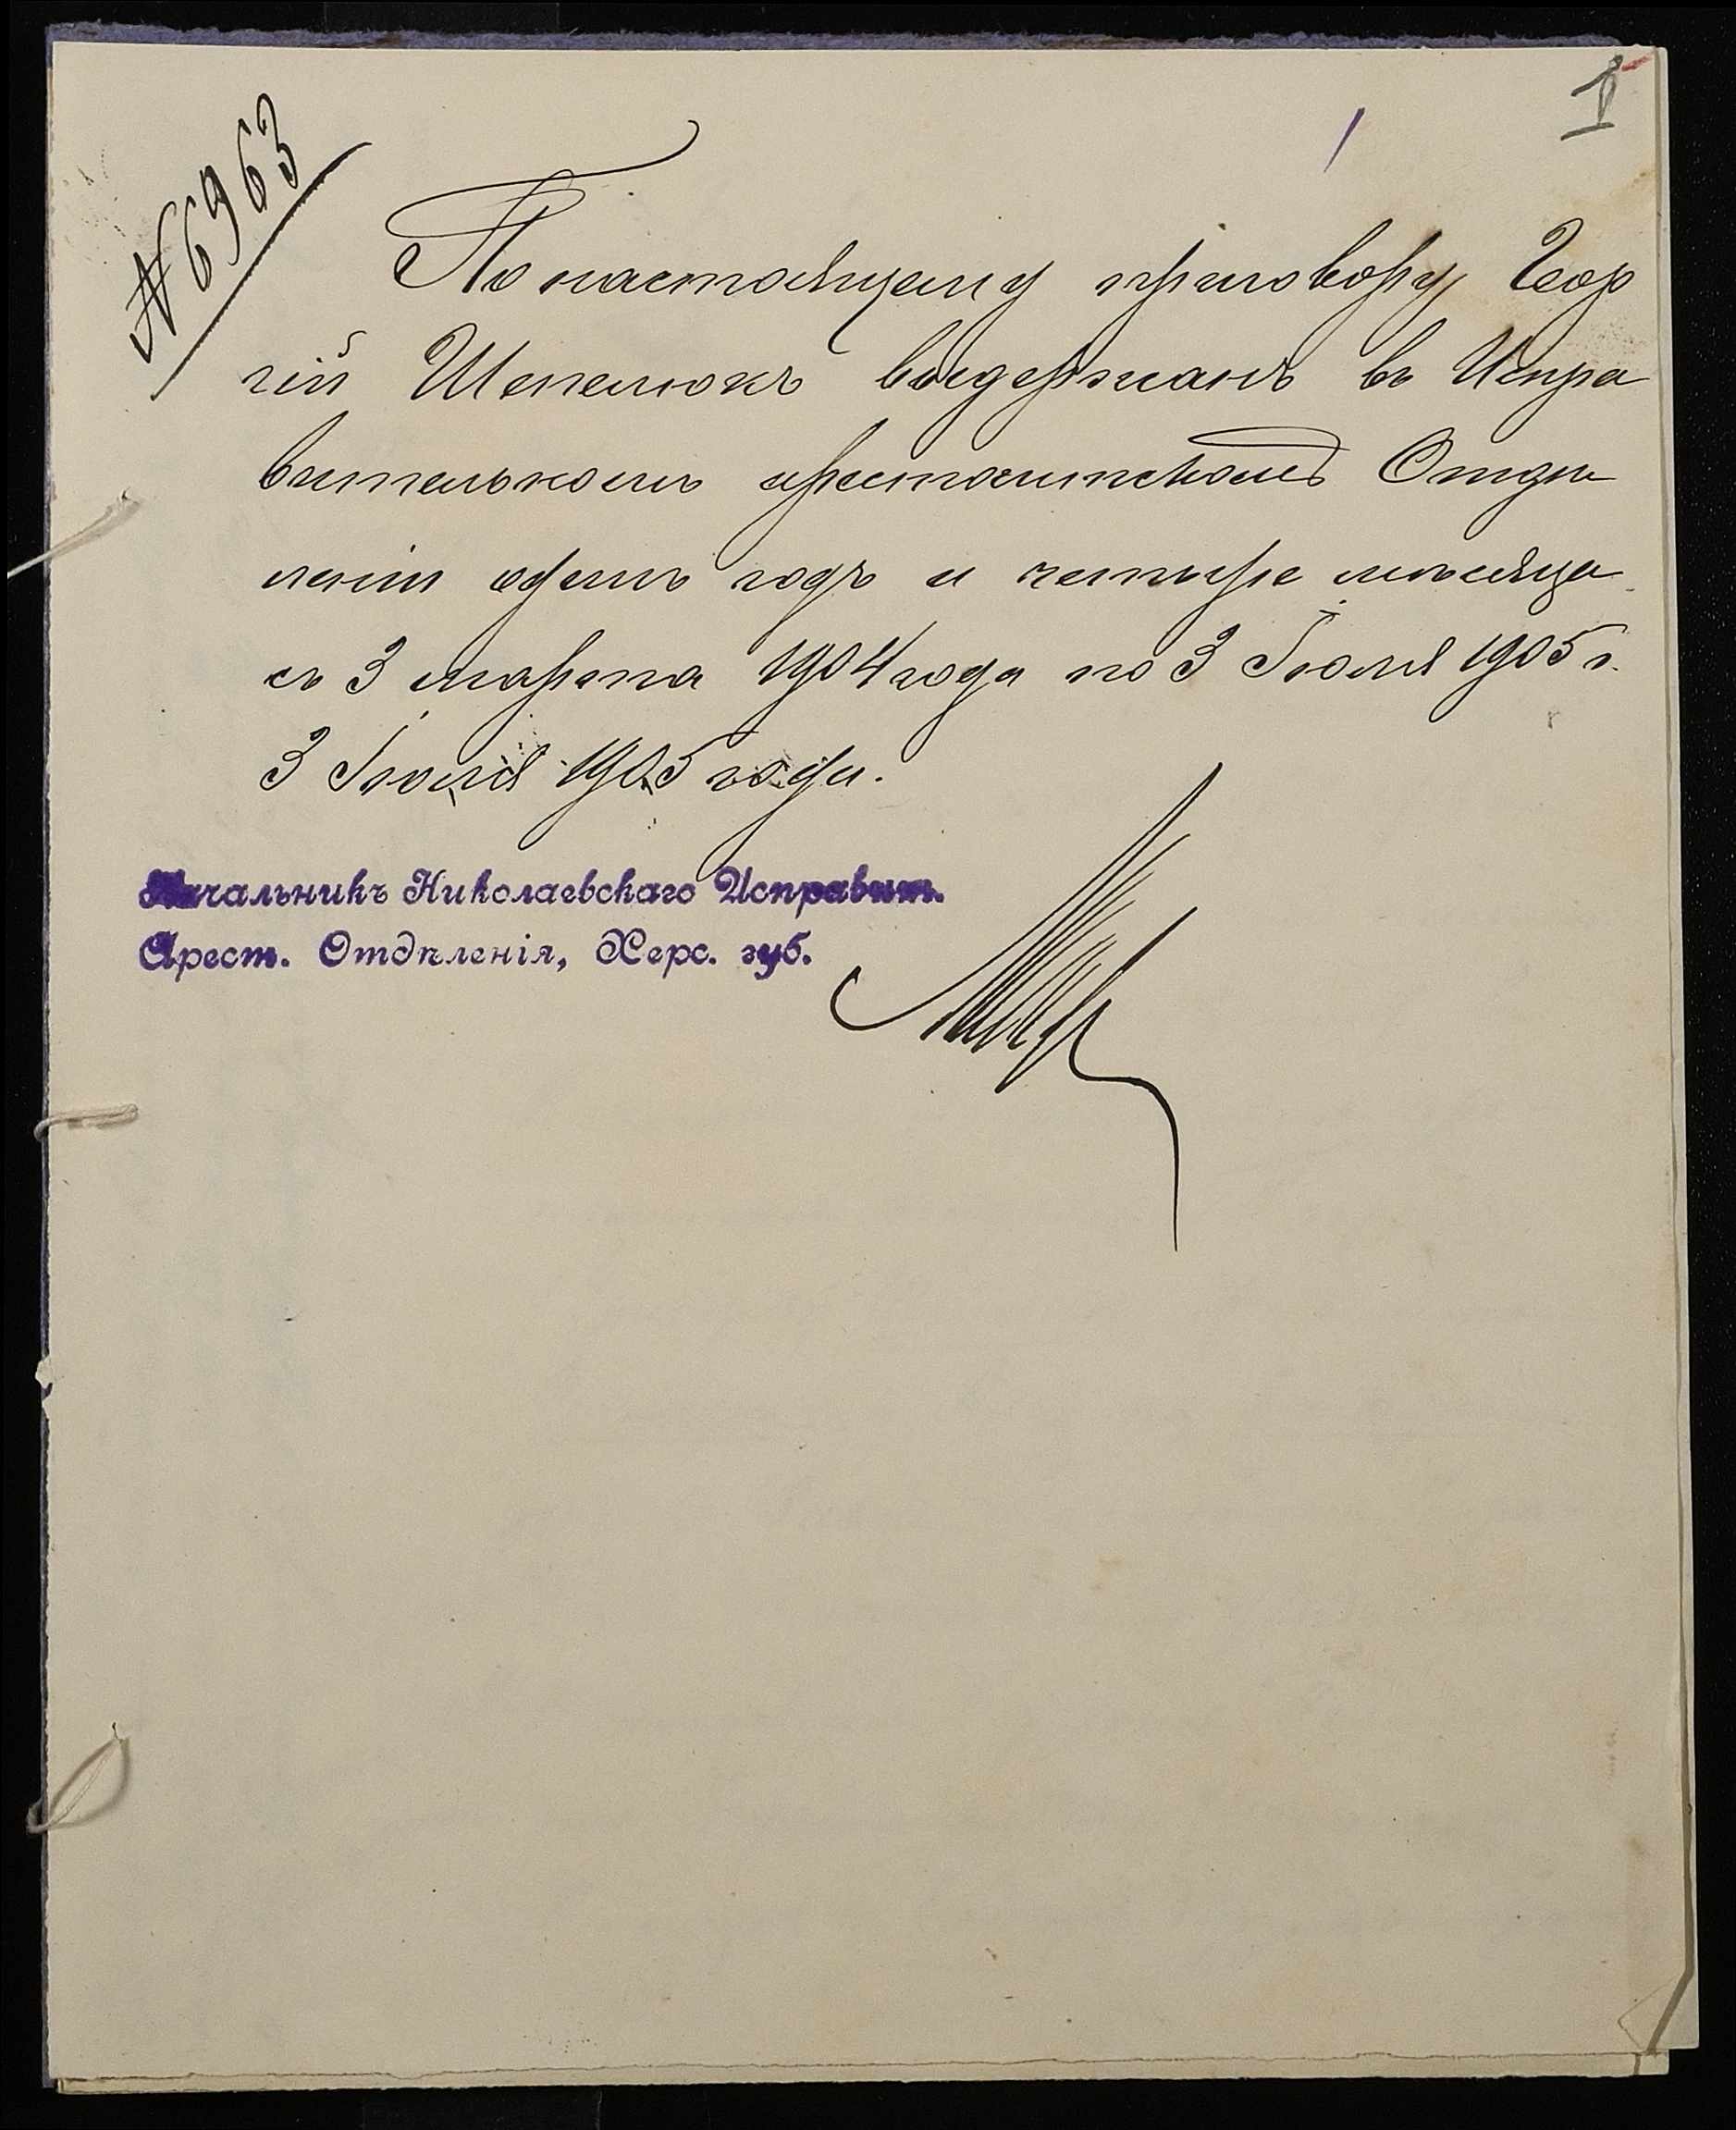 1
№ 6963
По настоящему приговору Геор
гій Шепелюкъ выдержанъ въ Испра
вительномъ арестантскомъ Отдѣ
леніи одинъ годъ и четыре мѣсяца
съ 3 марта 1904 года по 3 Іюля 1905 г.
3 Іюля 1905 года.
Начальникъ Николаевскаго Исправит.
Арест. Отдѣленія, Херс. губ.